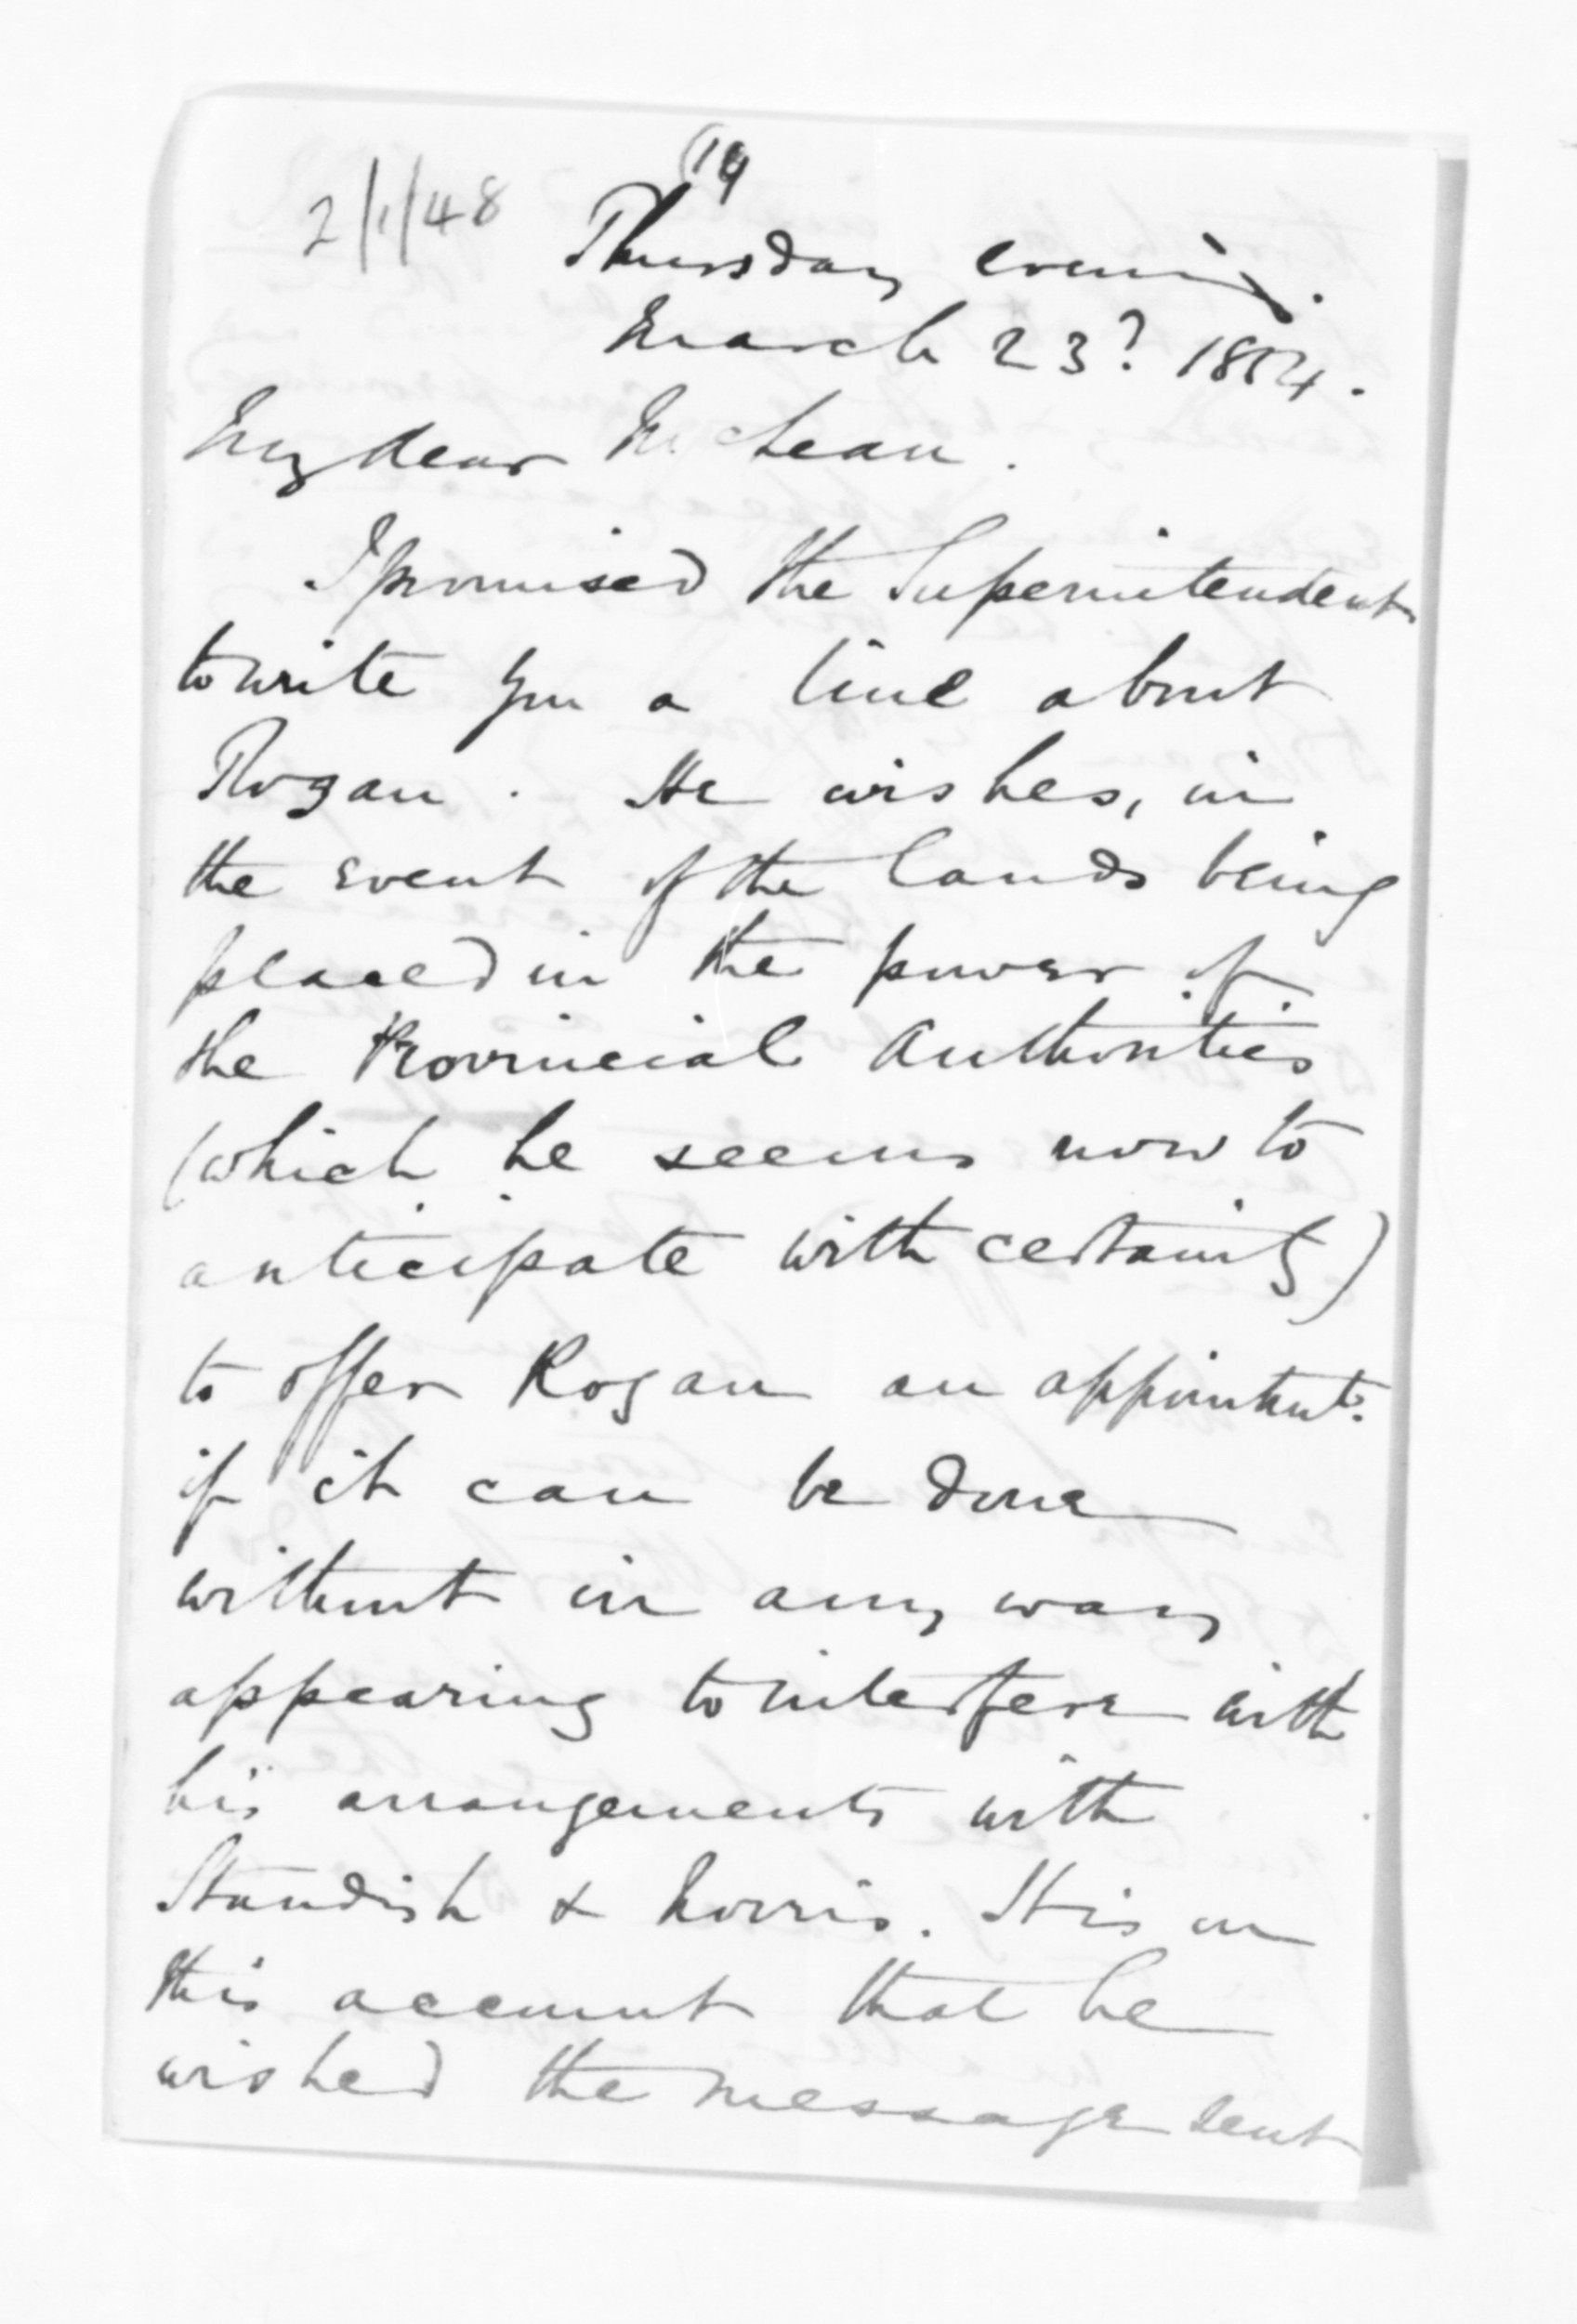 (19
2/1/48
Thursday evening.
March 23d 1854.
My dear McLean.
I promised the Superintendent
to write you a line about
Rogan. He wishes, in
the event of the lands being
placed in the power of
the Provincial Authorities
(which he seems now to
anticipate with certainty)
to offer Rogan an appointmt.
if it can be done
without in any way
appearing to interfere with
his arrangements with
Standish & Norris. It is on
this account that he
wished the message sent